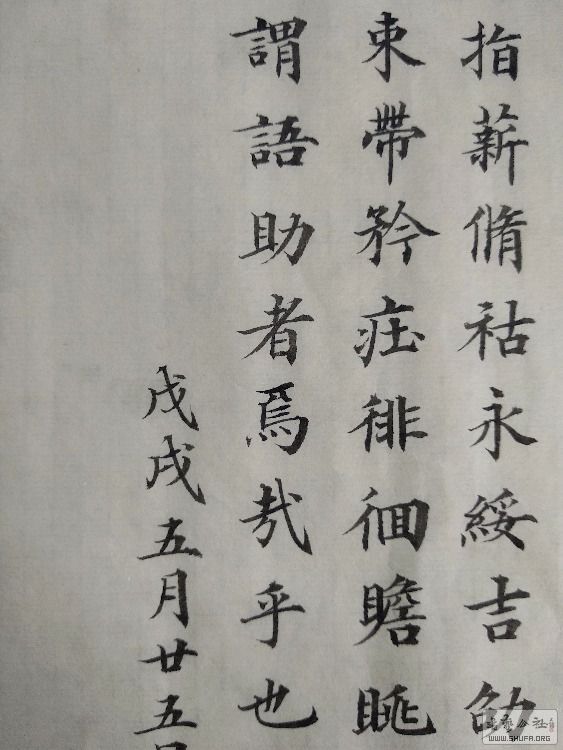 指薪脩祜永綏吉劭
束帶矜莊徘徊瞻眺
謂語助者焉哉乎也
戊戌五月廿五日
WWW.SHUFA.ORG